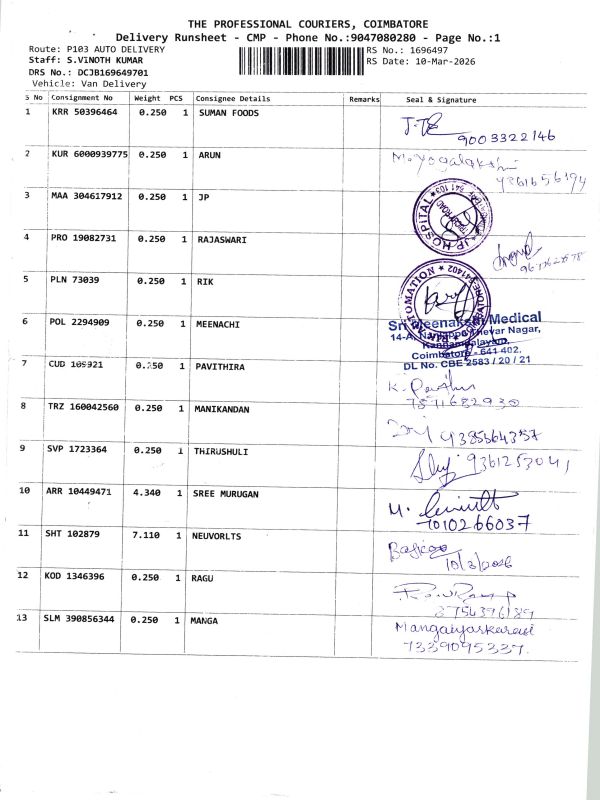 THE PROFESSIONAL COURIERS, COIMBATORE
Delivery Runsheet - CMP - Phone No.:9047080280 - Page No.:1
Route: P103 AUTO DELIVERY
RS No.: 1696497
Staff: S.VINOTH KUMAR
RS Date: 10-Mar-2026
DRS No.: DCJB169649701
Vehicle: Van Delivery
S No Consignment No Weight PCS Consignee Details Remarks Seal & Signature
1 KRR 50396464 0.250 1 SUMAN FOODS
9003322146
2 KUR 6000939775 0.250 1 ARUN
3 MAA 304617912 0.250 1 JP
JP HOSPITAL
4 PRO 19082731 0.250 1 RAJASWARI
5 PLN 73039 0.250 1 RIK
6 POL 2294909 0.250 1 MEENACHI
Sri Meenakshi Medical
Thevar Nagar,
Coimbatore - 641 402.
DL No. CBE 2583 / 20 / 21
7 CUD 109921 0.250 1 PAVITHIRA
8 TRZ 160042560 0.250 1 MANIKANDAN
9385564357
9 SVP 1723364 0.250 1 THIRUSHULI
9361253041
10 ARR 10449471 4.340 1 SREE MURUGAN
11 SHT 102879 7.110 1 NEUVORLTS
10/3/2026
12 KOD 1346396 0.250 1 RAGU
13 SLM 390856344 0.250 1 MANGA
Mangaiyarkarasi
7339095337.